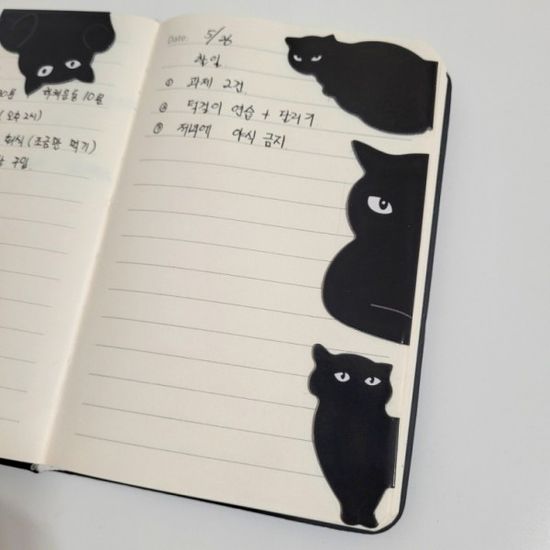 하체운동 10분
(오후 2시)
회식 (조금만 먹기)
구입
Date. 5/26
할일
① 과제 2건
② 턱걸이 연습 + 달리기
③ 저녁에 야식 금지